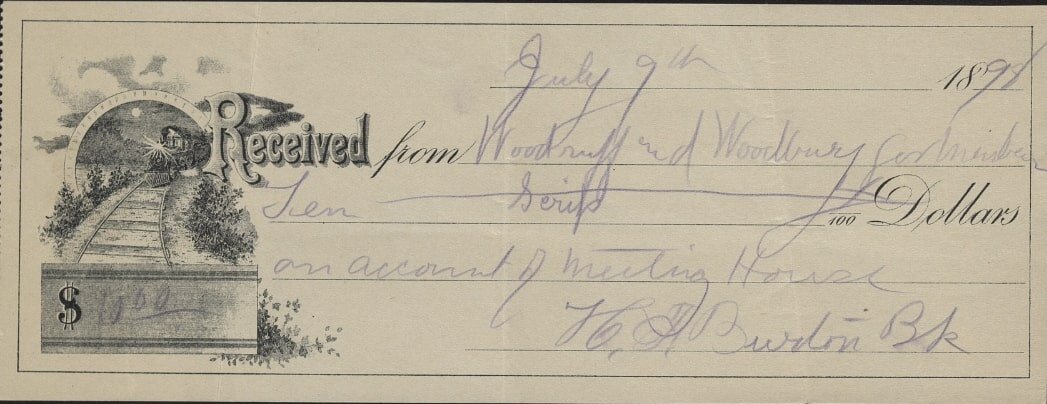 July 9th 1898
Received from Woodruff and Woodbury
Ten Scrip /100 Dollars
on account of Meeting House
$ 10.00
H. A. Burdon Bk